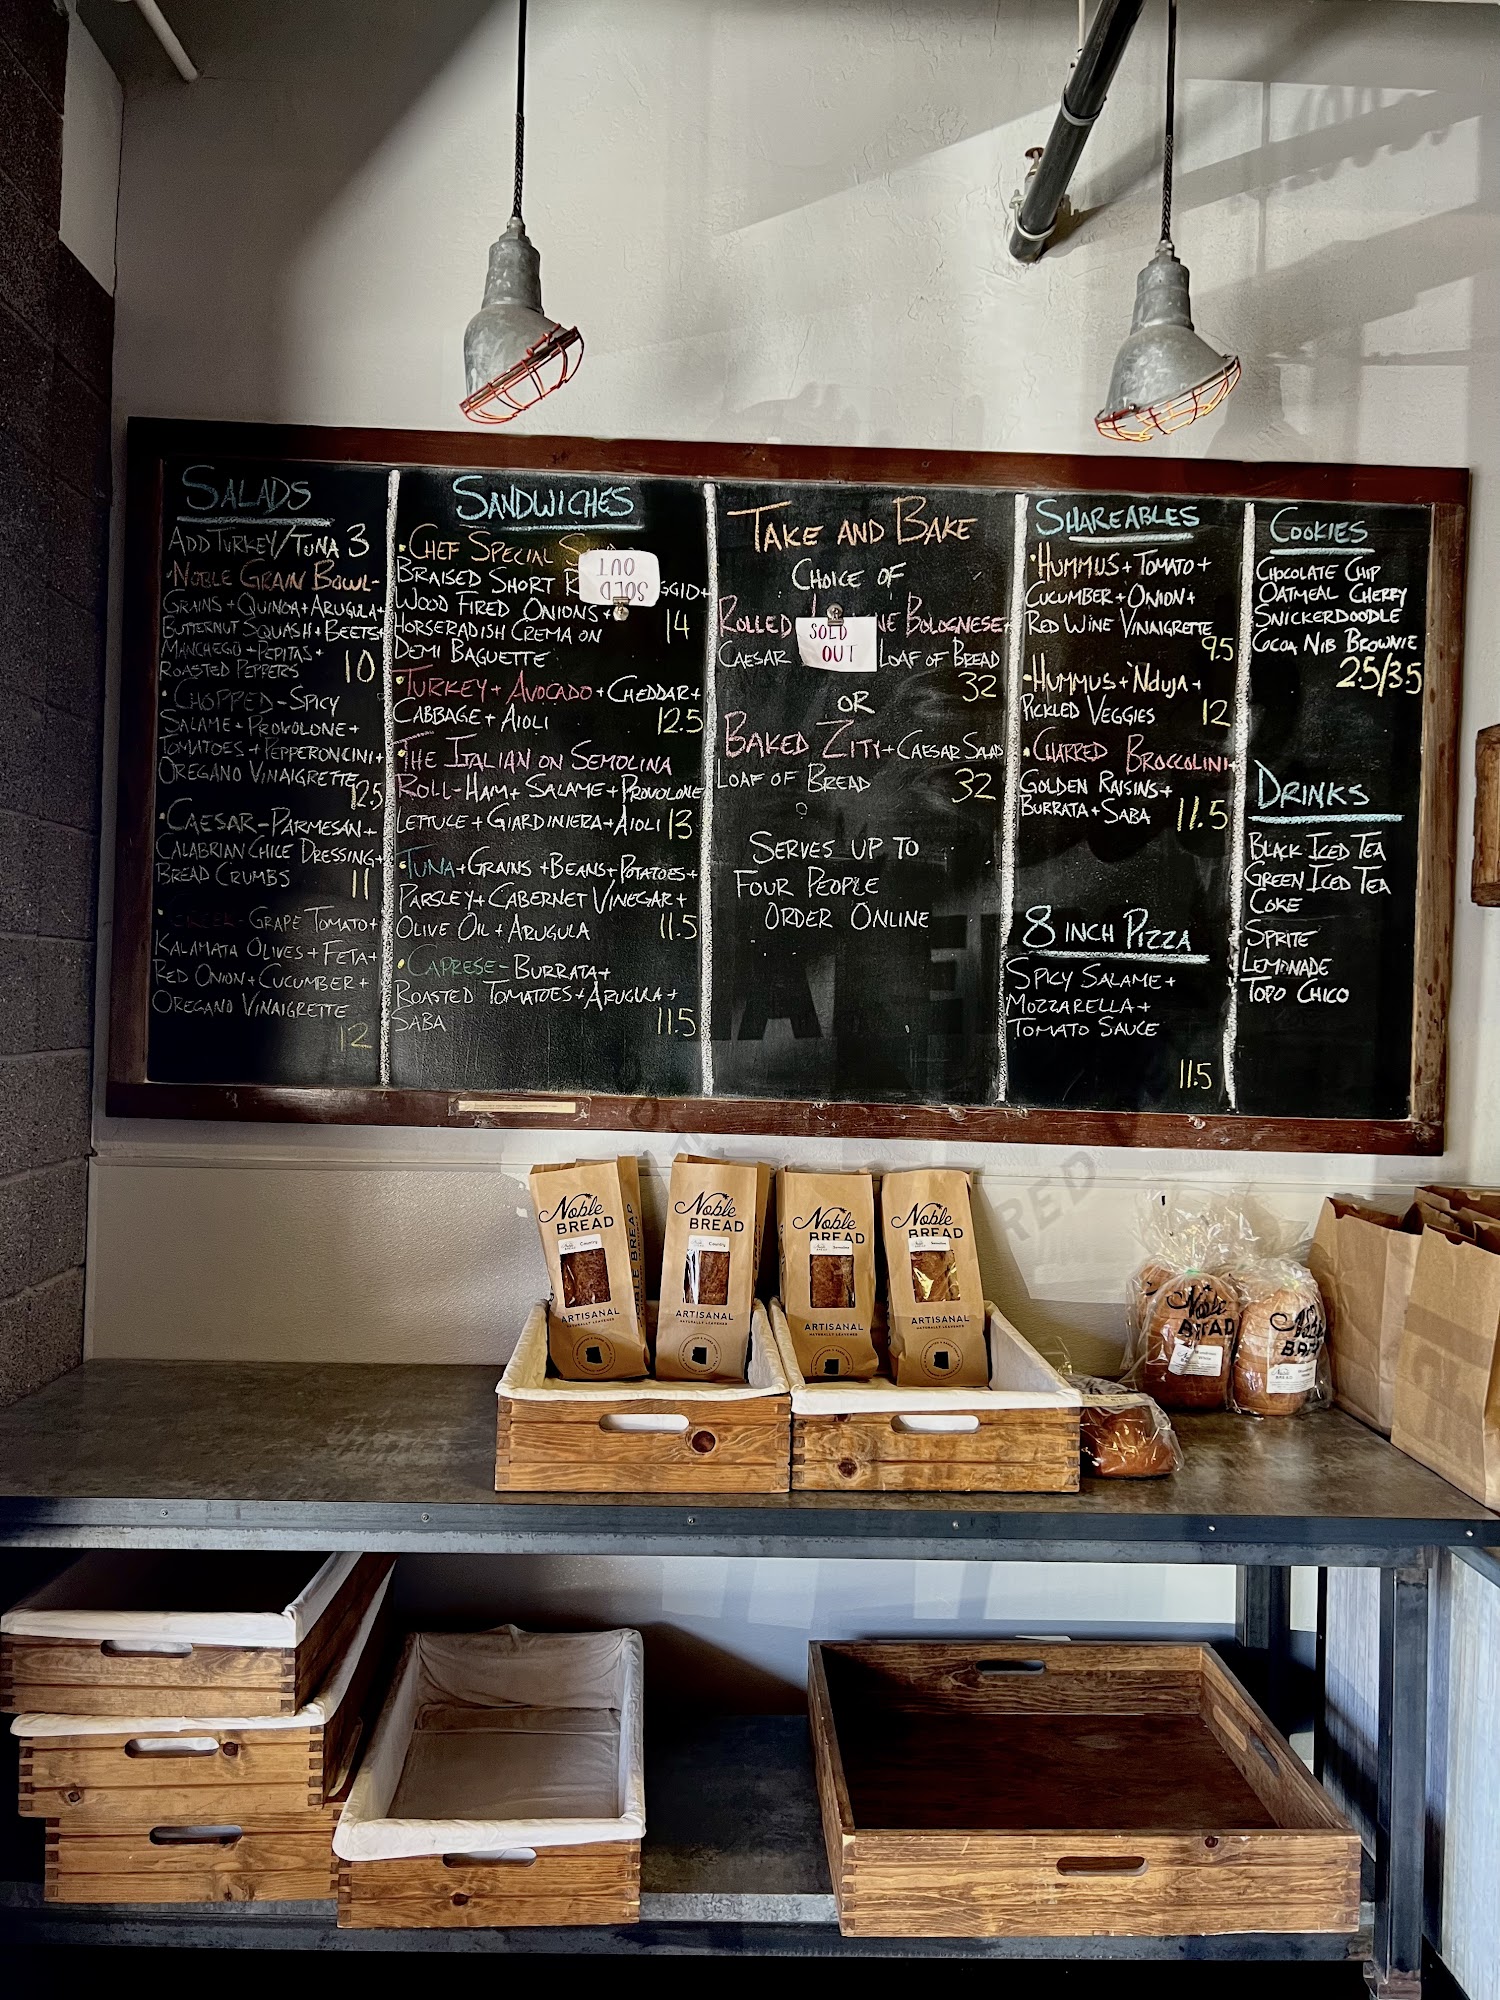 SALADS
ADD TURKEY/TUNA 3
·NOBLE GRAIN BOWL-
GRAINS+QUINOA+ARUGULA+
BUTTERNUT SQUASH+BEETS+
MANCHEGO+PEPITAS+
ROASTED PEPPERS 10
·CHOPPED-SPICY
SALAME+PROVOLONE+
TOMATOES+PEPPERONCINI+
OREGANO VINAIGRETTE
12.5
·CAESAR-PARMESAN+
CALABRIAN CHILE DRESSING+
BREAD CRUMBS 11
GRAPE TOMATO+
KALAMATA OLIVES+FETA+
RED ONION+CUCUMBER+
OREGANO VINAIGRETTE
12
SANDWICHES
·CHEF SPECIAL
SOLD
OUT
BRAISED SHORT GGIO+
WOOD FIRED ONIONS+
HORSERADISH CREMA ON 14
DEMI BAGUETTE
·TURKEY+AVOCADO+CHEDDAR+
CABBAGE+AIOLI 12.5
·THE ITALIAN ON SEMOLINA
ROLL-HAM+SALAME+PROVOLONE
LETTUCE+GIARDINIERA+AIOLI 13
·TUNA+GRAINS+BEANS+POTATOES+
PARSLEY+CABERNET VINEGAR+
OLIVE OIL+ARUGULA 11.5
·CAPRESE-BURRATA+
ROASTED TOMATOES+ARUGULA+
SABA 11.5
TAKE AND BAKE
CHOICE OF
ROLLED NE BOLOGNESE+
SOLD
OUT
CAESAR LOAF OF BREAD
32
OR
BAKED ZITY+CAESAR SALAD
LOAF OF BREAD 32
SERVES UP TO
FOUR PEOPLE
ORDER ONLINE
SHAREABLES
·HUMMUS+TOMATO+
CUCUMBER+ONION+
RED WINE VINAIGRETTE
9.5
·HUMMUS+'NDUJA+
PICKLED VEGGIES 12
·CHARRED BROCCOLINI+
GOLDEN RAISINS+
BURRATA+SABA 11.5
8 INCH PIZZA
SPICY SALAME+
MOZZARELLA+
TOMATO SAUCE
11.5
COOKIES
CHOCOLATE CHIP
OATMEAL CHERRY
SNICKERDOODLE
COCOA NIB BROWNIE
2.5/3.5
DRINKS
BLACK ICED TEA
GREEN ICED TEA
COKE
SPRITE
LEMONADE
TOPO CHICO
Noble
BREAD
Country
ARTISANAL
NATURALLY LEAVENED
Noble
BREAD
Country
ARTISANAL
NATURALLY LEAVENED
Noble
BREAD
Semolina
ARTISANAL
NATURALLY LEAVENED
Noble
BREAD
Semolina
ARTISANAL
NATURALLY LEAVENED
Noble
BREAD
Noble
BREAD